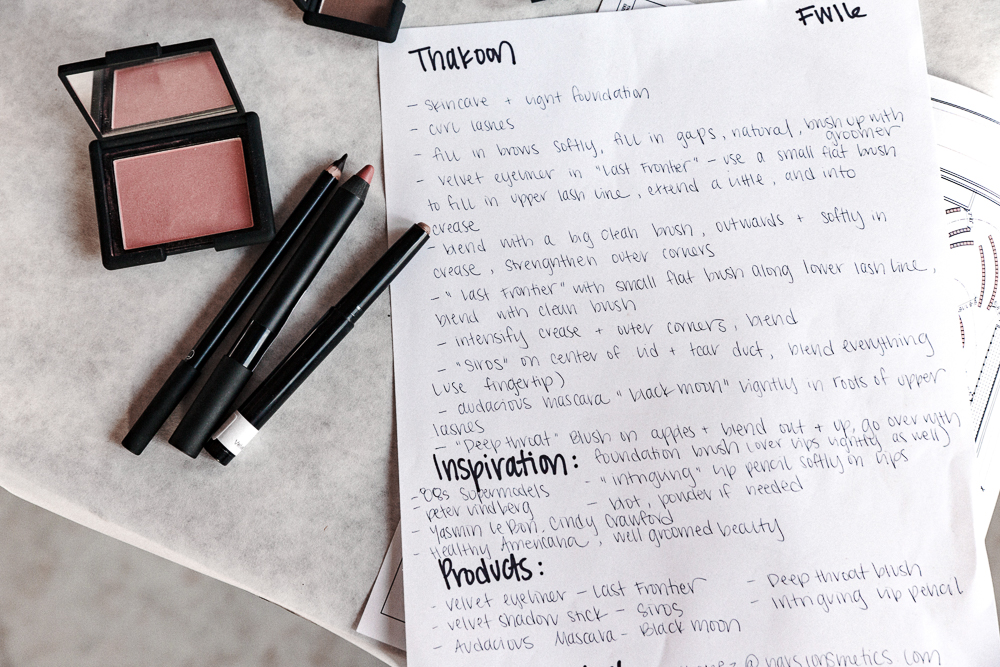 FW16
Thakoon
- skincare + light foundation
- curl lashes
- fill in brows softly, fill in gaps, natural, brush up with
groomer
- velvet eyeliner in "Last Frontier" - use a small flat brush
to fill in upper lash line, extend a little, and into
crease
- blend with a big clean brush, outwards + softly in
crease, strengnthen outer corners
- "Last Frontier" with small flat brush along lower lash line,
blend with clean brush
- intensify crease + outer corners, blend
- "Siros" on center of lid + tear duct, blend everything
(use fingertip)
- audacious mascara "black moon" lightly in roots of upper
lashes
- "Deep throat" Blush on apples + blend out + up, go over with
foundation brush (over lips lightly as well)
Inspiration:
- "intriguing" lip pencil softly on lips
- blot, powder if needed
- 80s Supermodels
- peter lindberg
- Yasmin Le Bon, Cindy Crawford
- Healthy Americana, well groomed beauty
Products:
- velvet eyeliner - Last Frontier
- velvet shadow stick - Siros
- Audacious Mascara - Black moon
- Deep throat blush
- Intriguing lip pencil
@narscosmetics.com